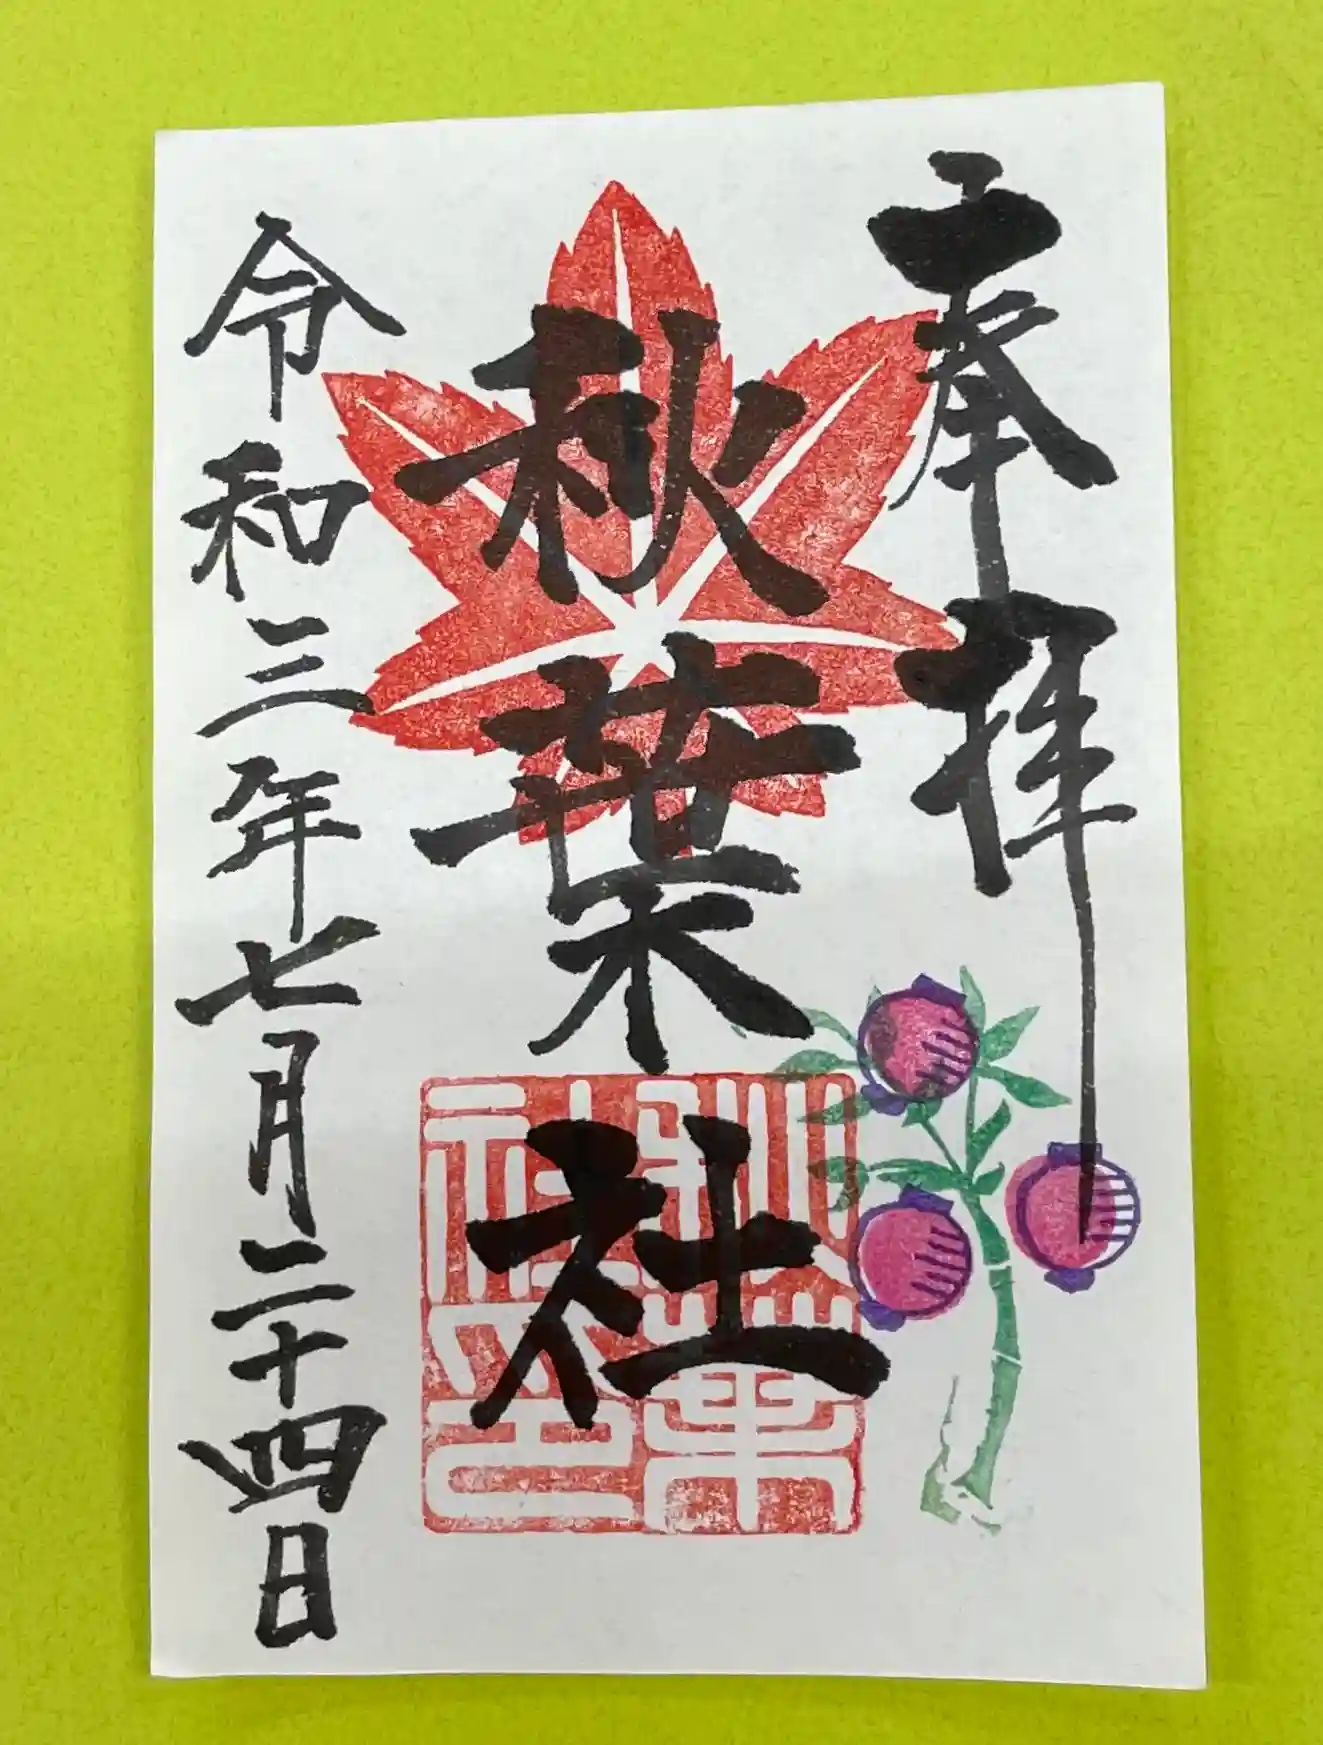 奉拝
秋葉社
秋葉社之印
令和三年七月二十四日